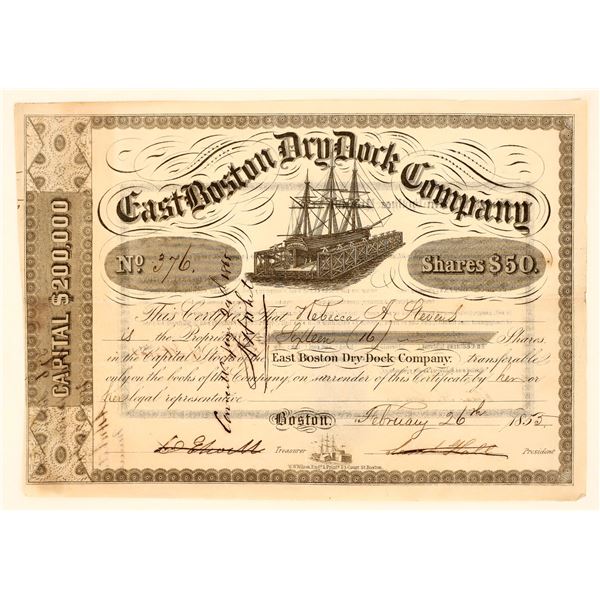 East Boston Dry Dock Company
No 376.
Shares $50.
CAPITAL $200,000
This Certifies That Rebecca A. Stevens
is the Proprietor of Sixteen (16) Shares
in the Capital Stock of the East Boston Dry-Dock Company, transferable
only on the books of the Company, on surrender of this Certificate by her or
her legal representative
Boston. February 26th 1855.
Treasurer
President